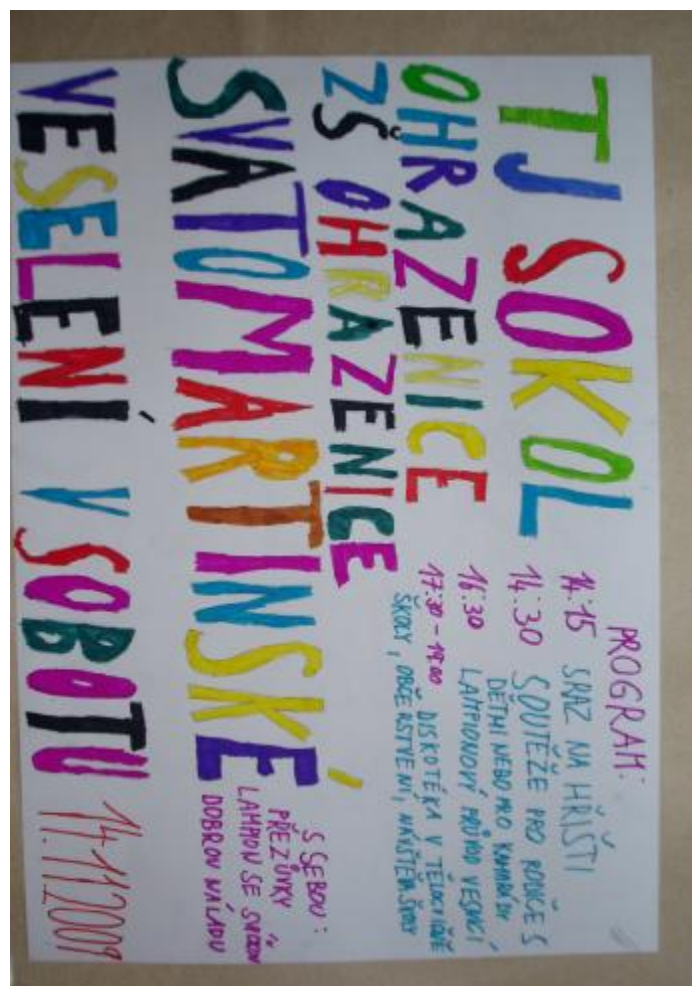 TJ SOKOL
OHRAZENICE
ZŠ OHRAZENICE
SVATOMARTINSKÉ
VESELENÍ V SOBOTU 14.11.2009
PROGRAM:
14:15 SRAZ NA HŘIŠTI
14:30 SOUTĚŽE PRO RODIČE S
DĚTMI NEBO PRO KAMARÁDY
16:30 LAMPIONOVÝ PRŮVOD VESNICÍ
17:30 - 19:00 DISKOTÉKA V TĚLOCVIČNĚ
ŠKOLY, OBČERSTVENÍ, NÁVŠTĚVA ŠKOLY
S SEBOU:
PŘEZŮVKY
LAMPION SE SVÍČKOU
DOBROU NÁLADU